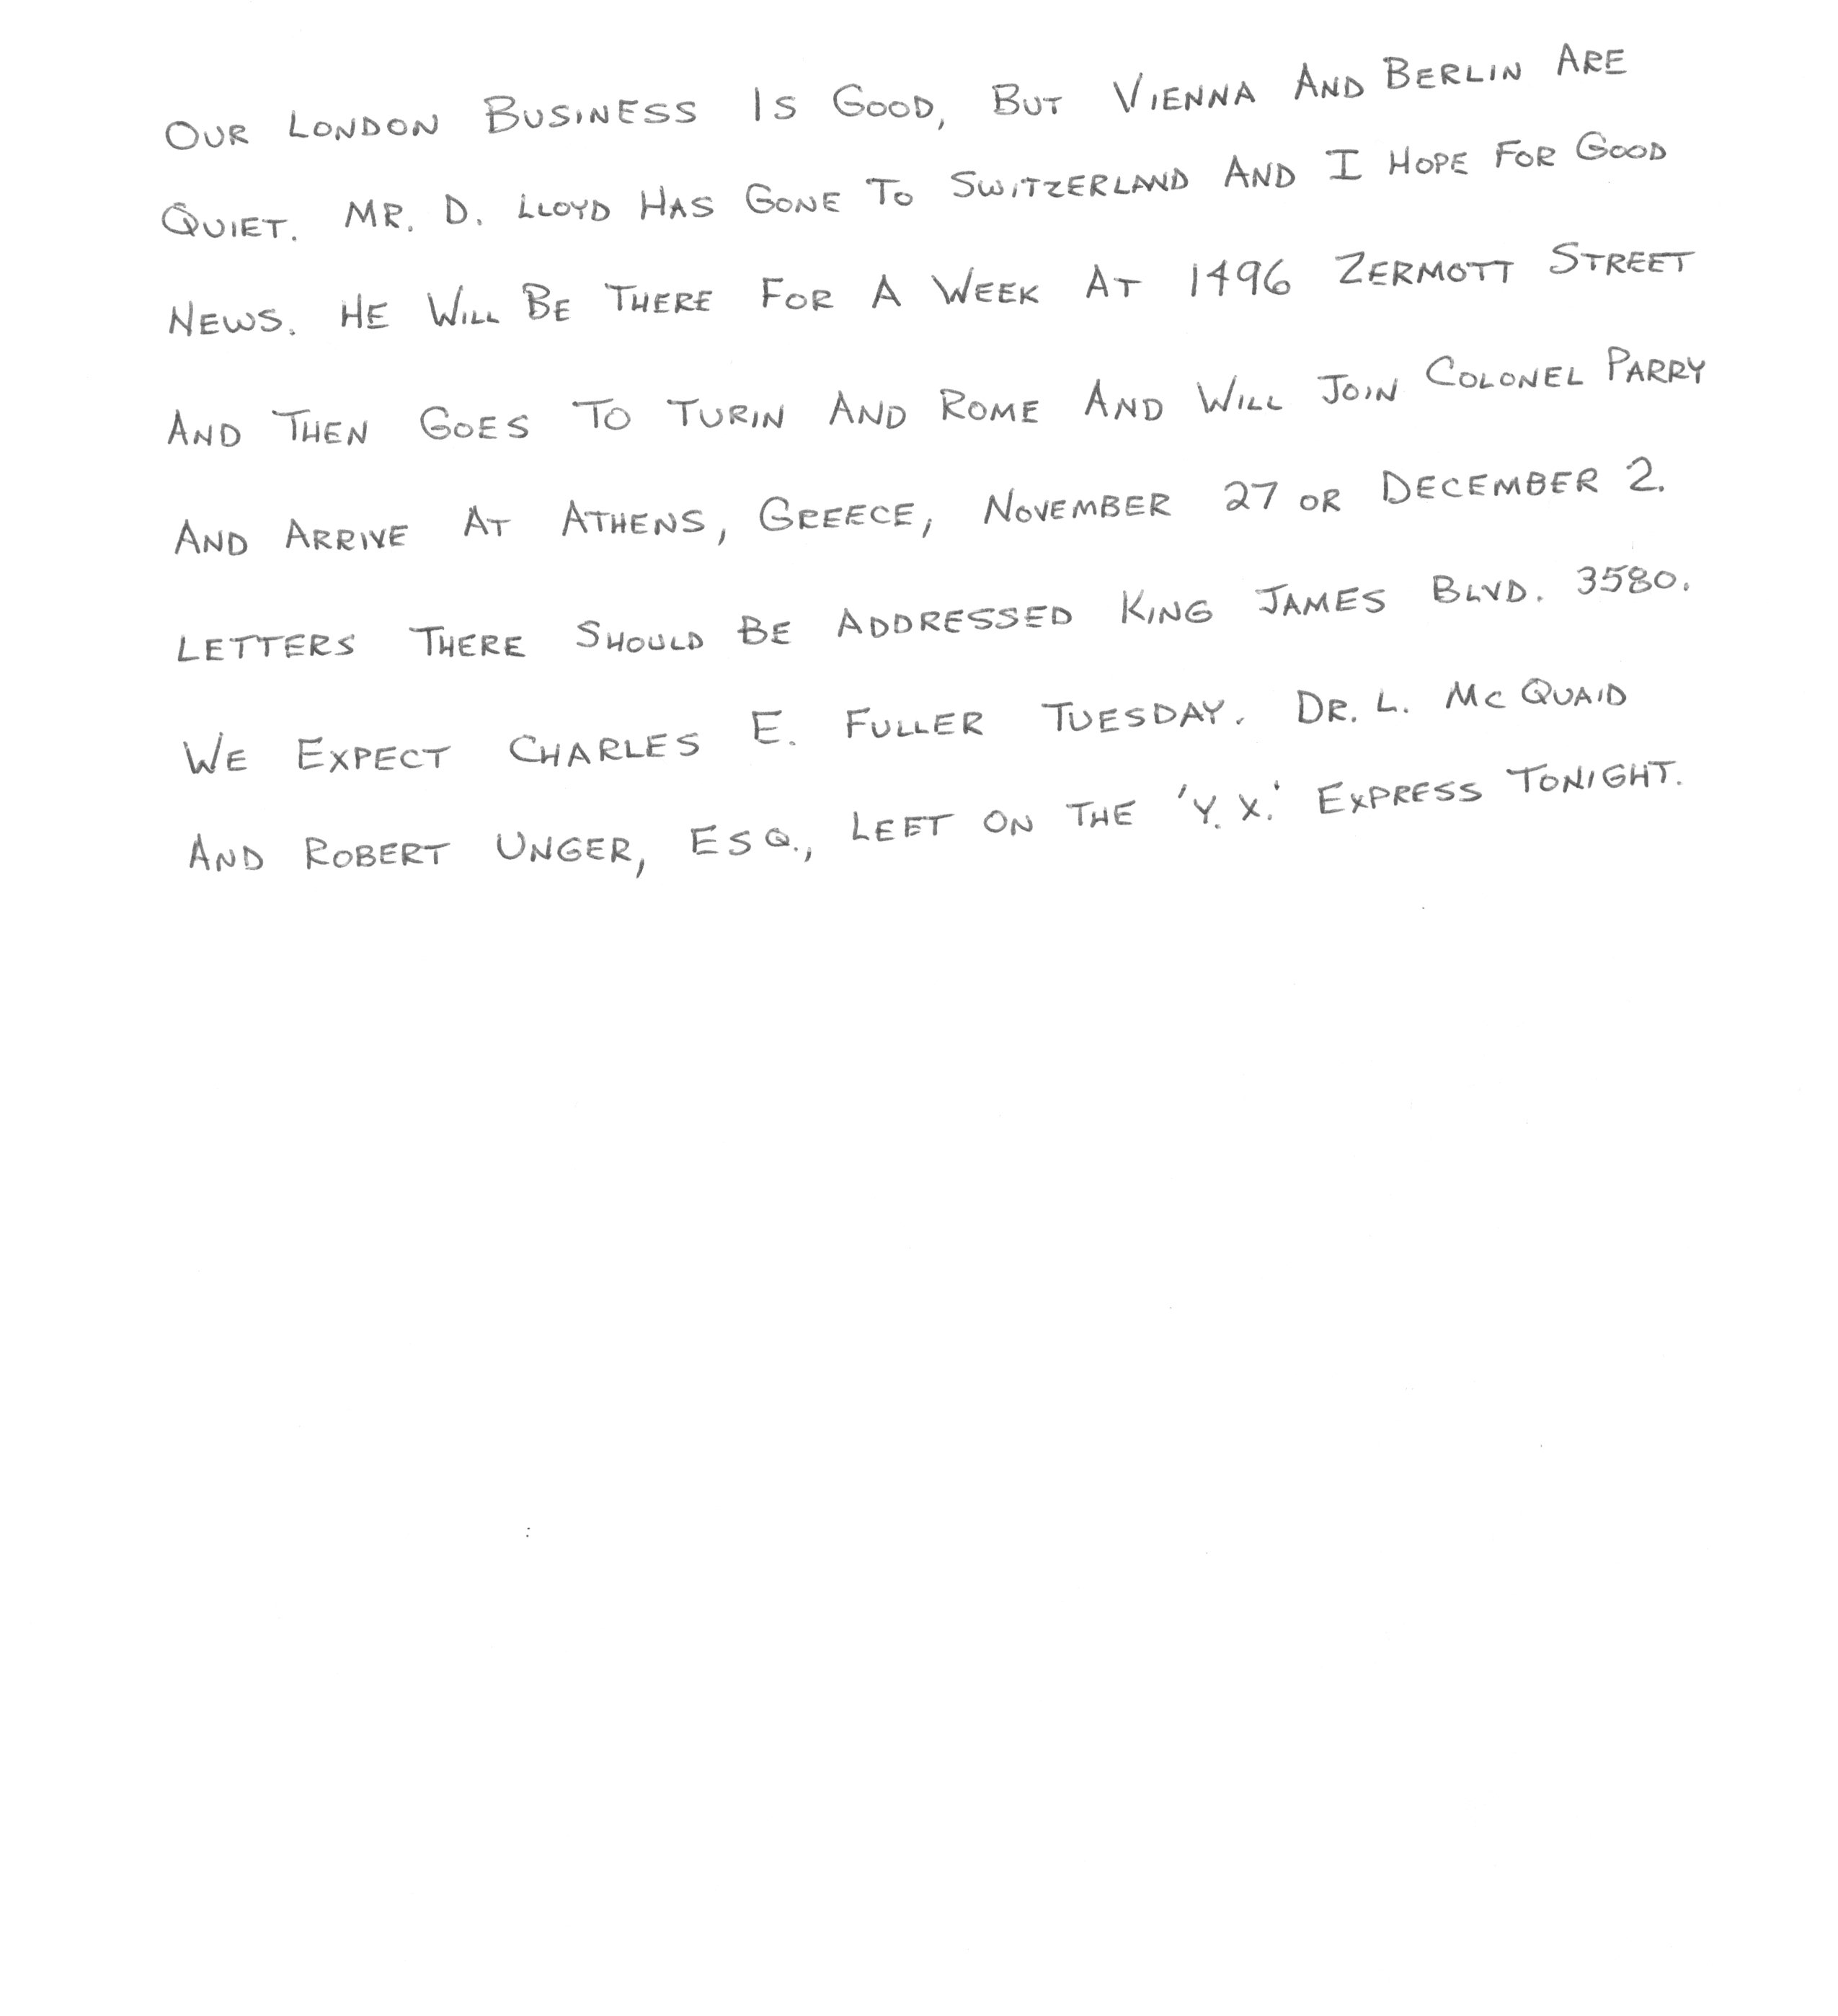 OUR LONDON BUSINESS IS GOOD, BUT VIENNA AND BERLIN ARE
QUIET. MR. D. LLOYD HAS GONE TO SWITZERLAND AND I HOPE FOR GOOD
NEWS. HE WILL BE THERE FOR A WEEK AT 1496 ZERMOTT STREET
AND THEN GOES TO TURIN AND ROME AND WILL JOIN COLONEL PARRY
AND ARRIVE AT ATHENS, GREECE, NOVEMBER 27 OR DECEMBER 2.
LETTERS THERE SHOULD BE ADDRESSED KING JAMES BLVD. 3580.
WE EXPECT CHARLES E. FULLER TUESDAY. DR. L. MC QUAID
AND ROBERT UNGER, ESQ., LEFT ON THE 'Y.X.' EXPRESS TONIGHT.